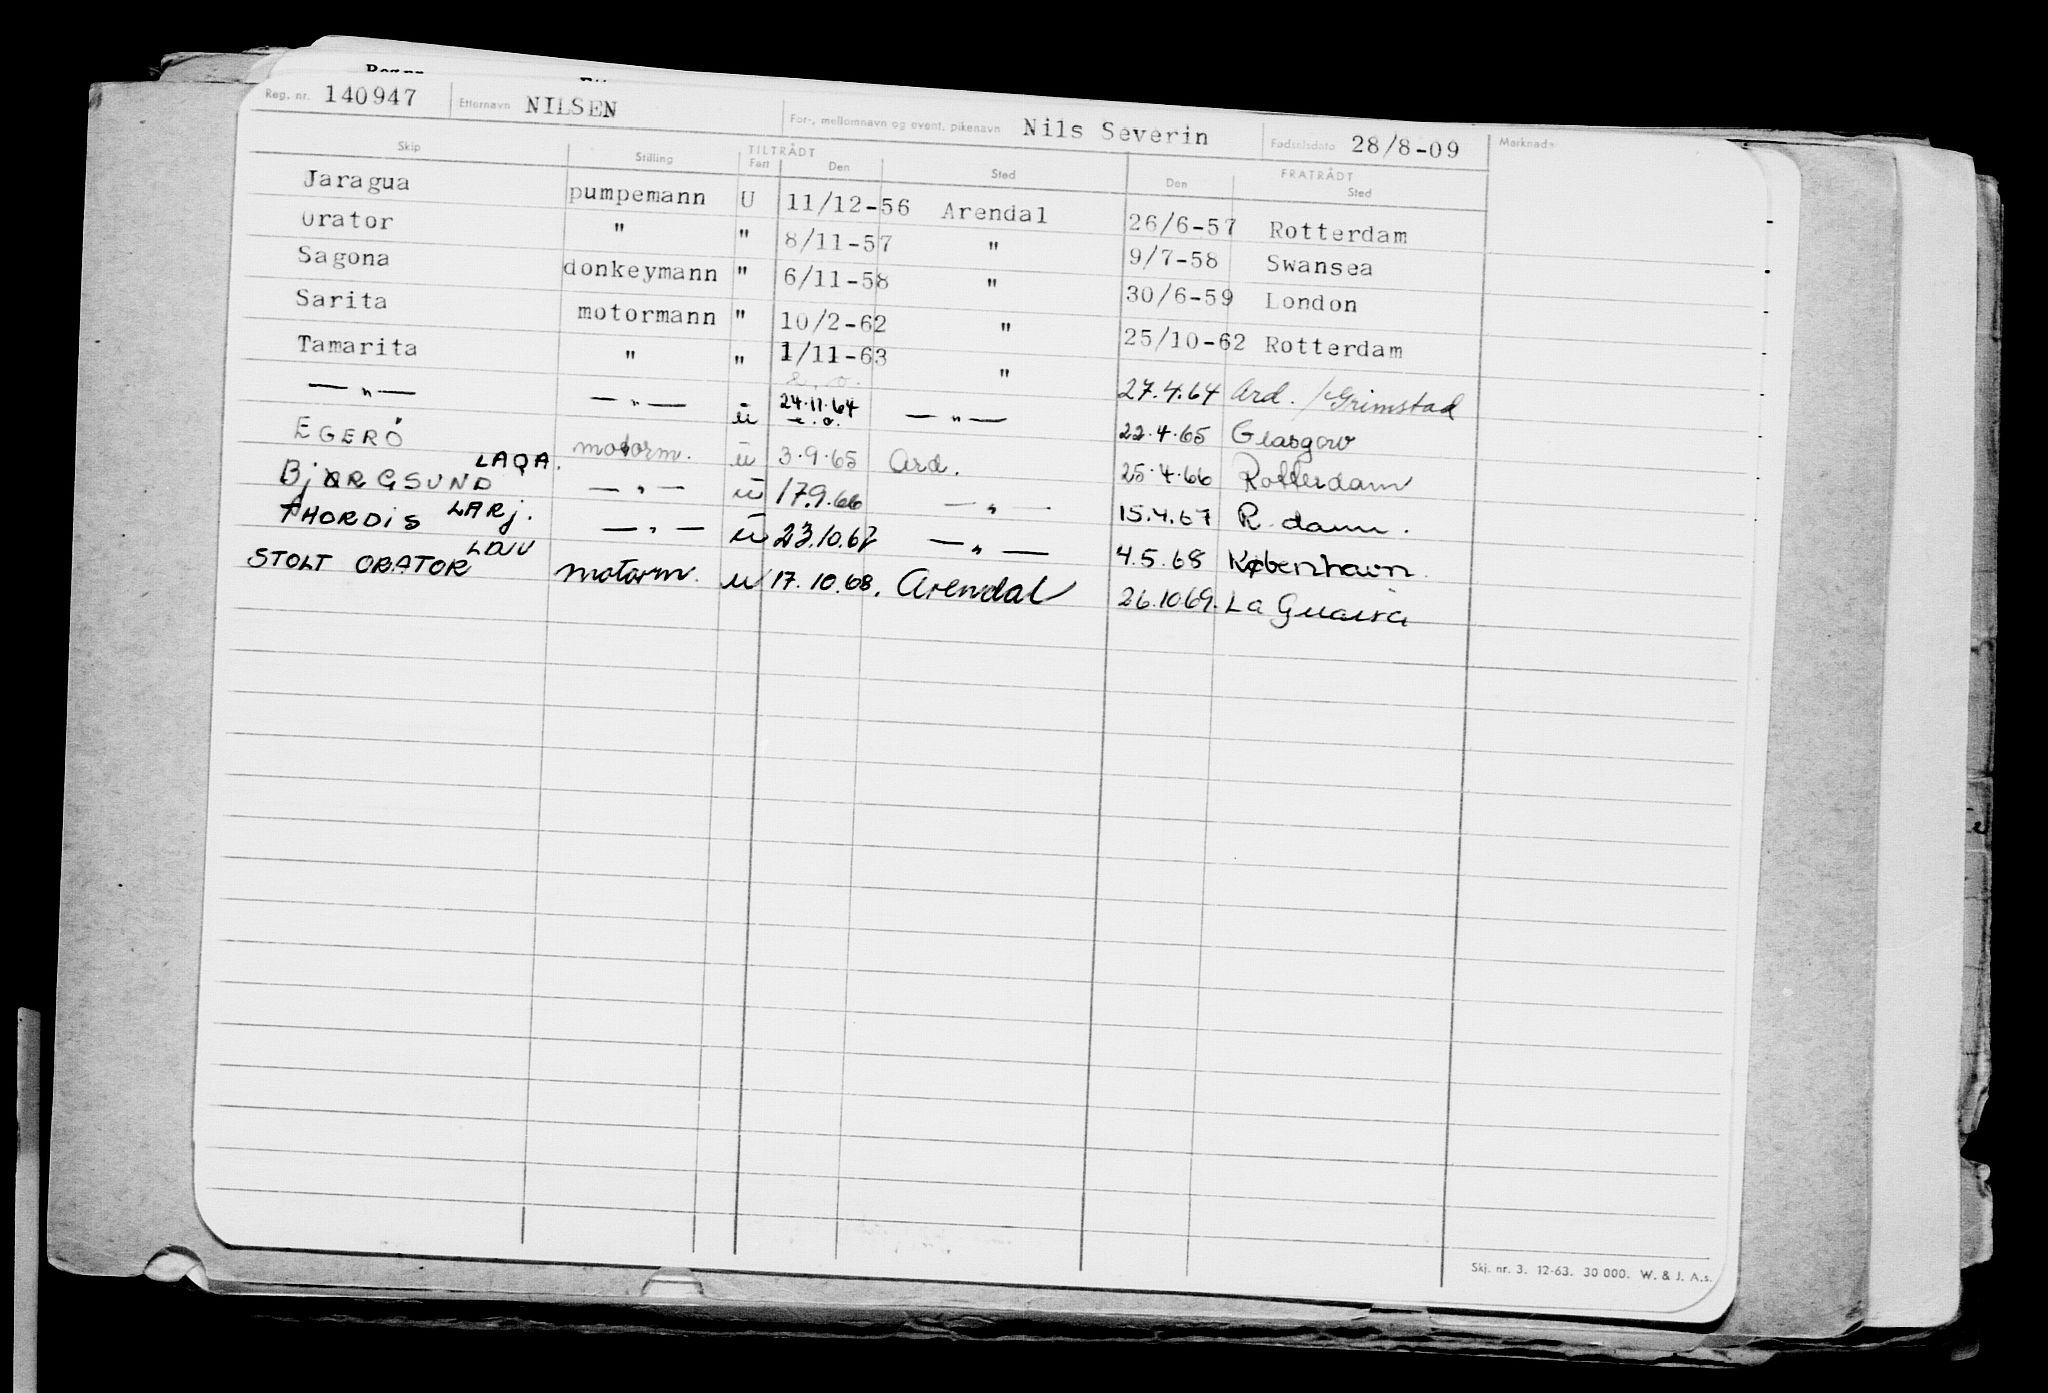 Reg. nr. 140947 Etternavn NILSEN For-, mellomnavn og event. pikenavn Nils Severin Fødselsdato 28/8-09 Merknader
Skip Stilling TILTRÅDT Fart Den Sted FRATRÅDT Den Sted
Jaragua pumpemann U 11/12-56 Arendal 26/6-57 Rotterdam
Orator " " 8/11-57 " 9/7-58 Swansea
Sagona donkeymann " 6/11-58 " 30/6-59 London
Sarita motormann " 10/2-62 " 25/10-62 Rotterdam
Tamarita " " 1/11-63 " 27.4.64 Ard. /Grimstad
— " — — " — u 24.11.64 — " — 22.4.65 Glasgow
EGERÖ motorm. u 3.9.65 Ard. 25.4.66 Rotterdam
BjØRGSUND LAQA. — " — u 17.9.66 — " — 15.4.67 R.dam.
THORDIS LARj. — " — u 23.10.67 — " — 4.5.68 København.
STOLT ORATOR motorm. u 17.10.68. Arendal 26.10.69. La Guaira
Skj. nr. 3. 12-63. 30 000. W. & J. A.s.